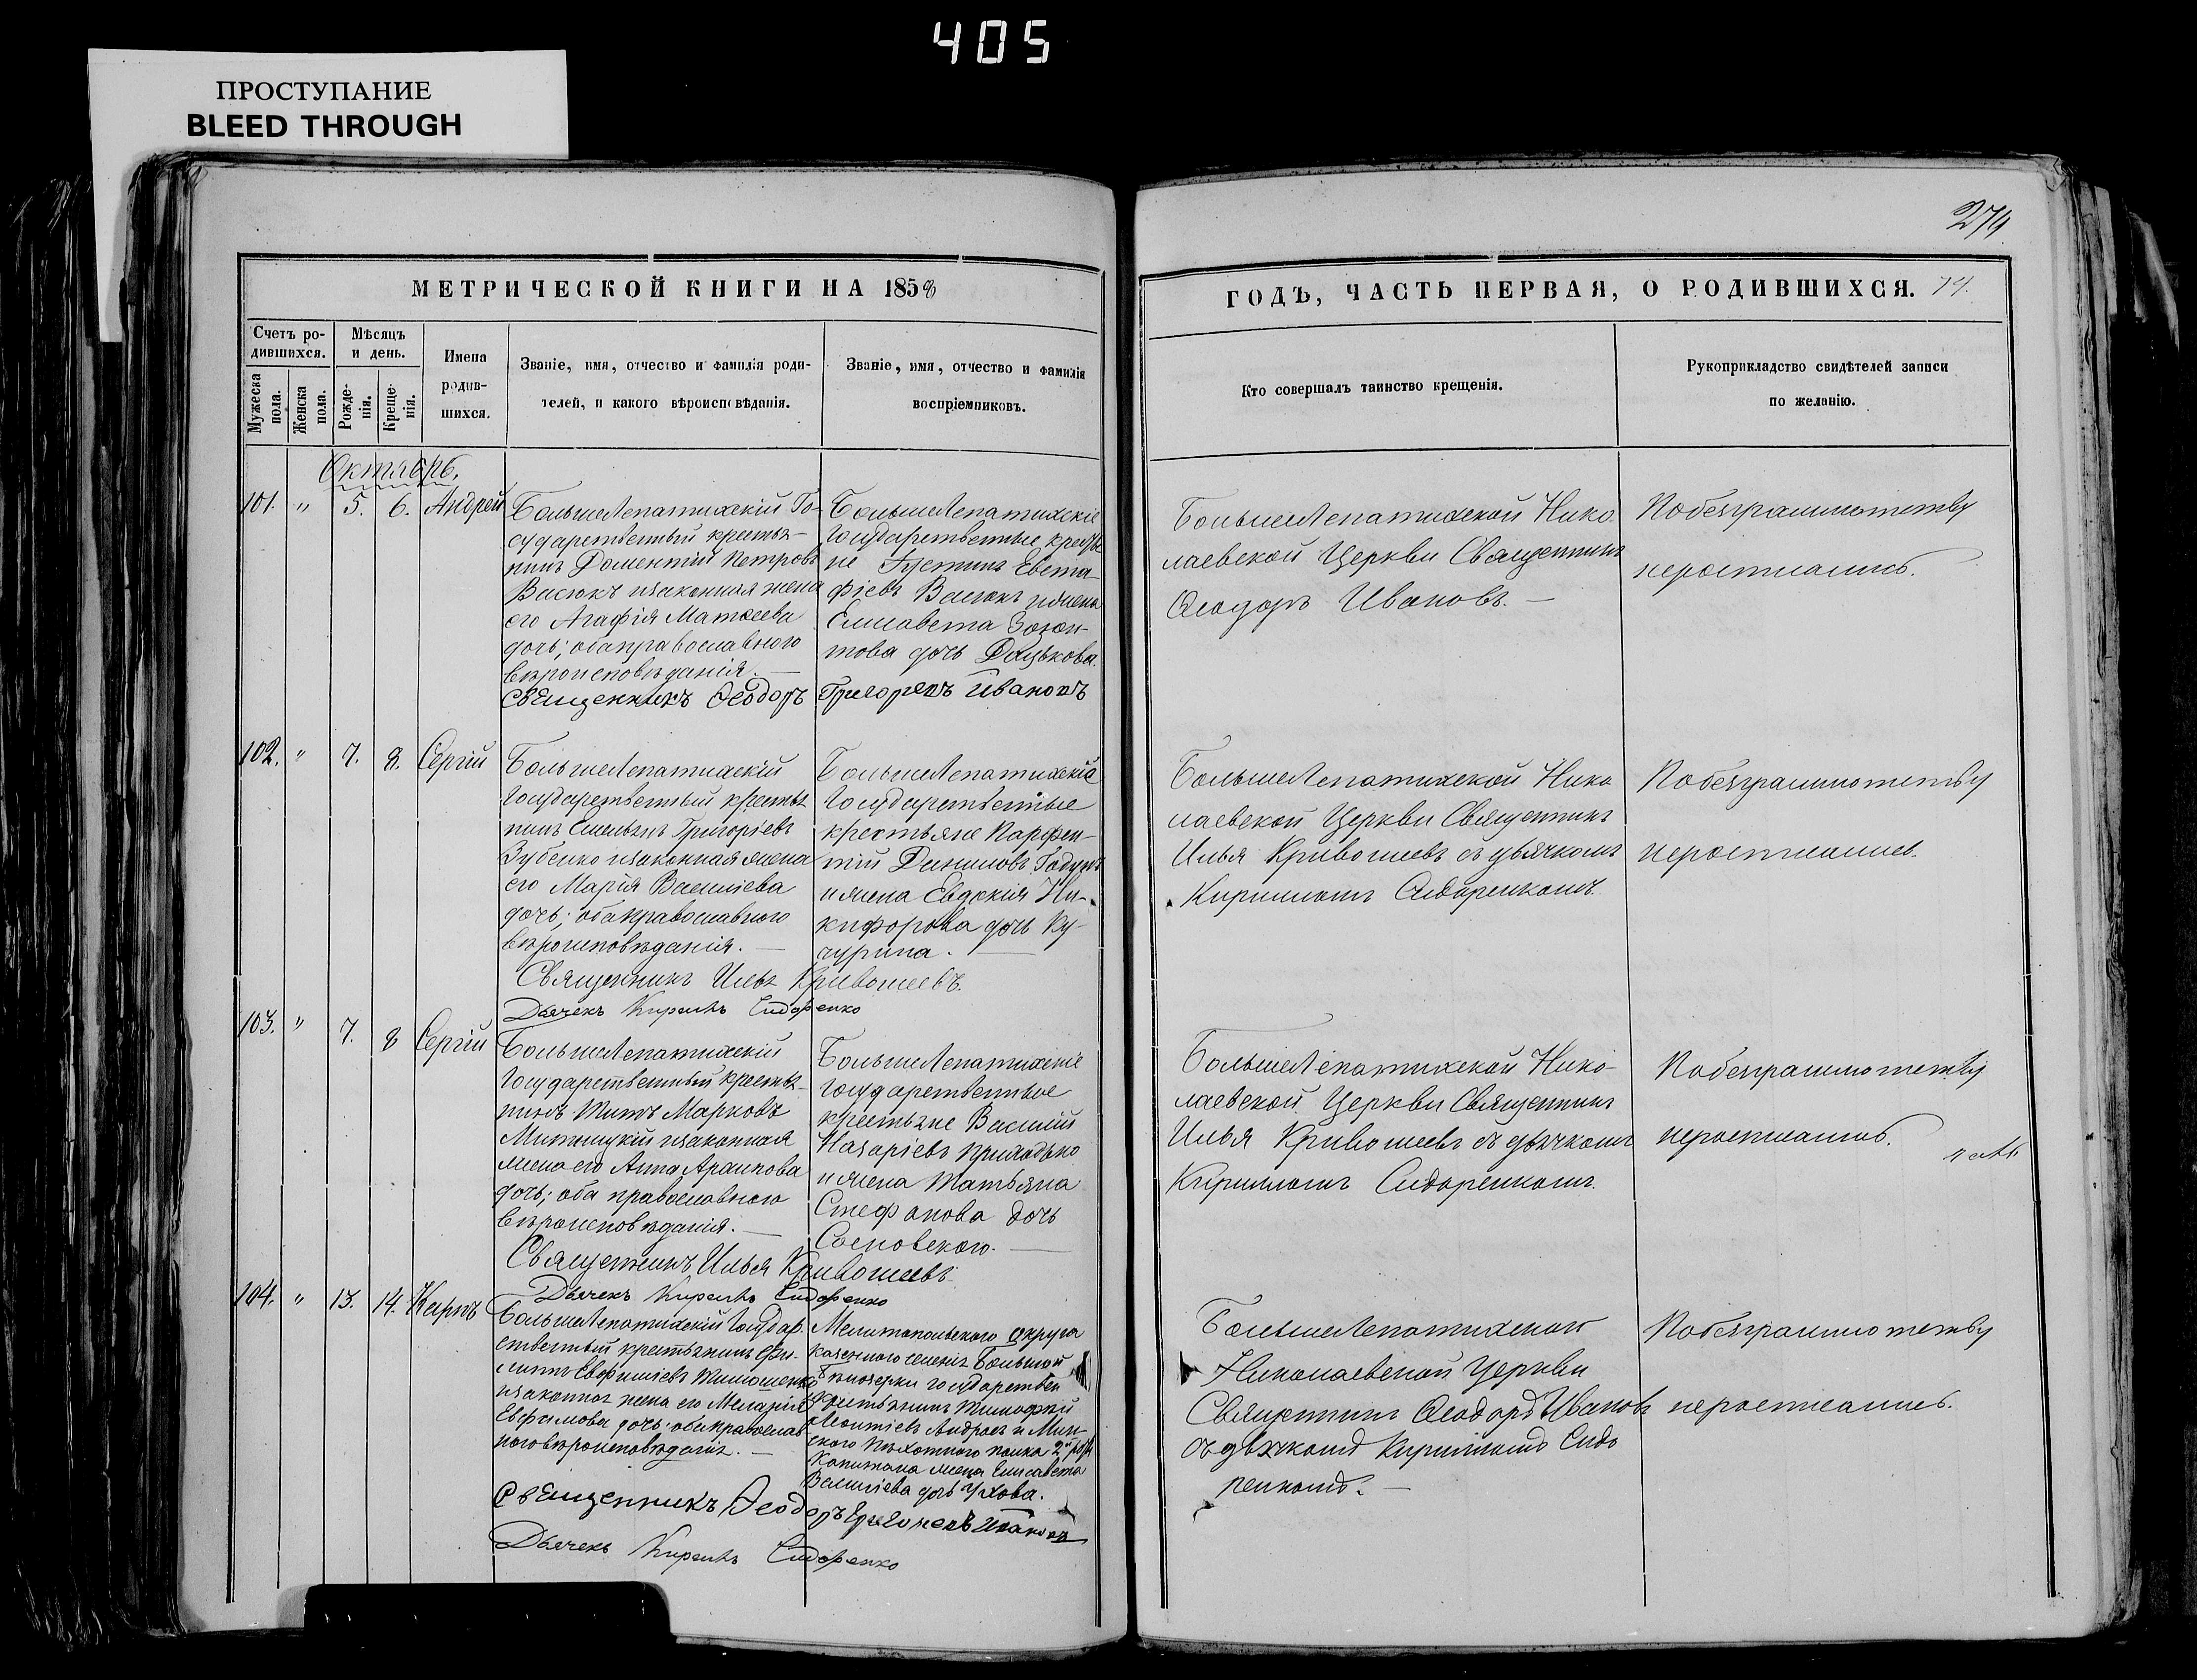 405
ПРОСТУПАНИЕ
BLEED THROUGH
274
МЕТРИЧЕСКОЙ КНИГИ НА 1858
ГОДЪ, ЧАСТЬ ПЕРВАЯ, О РОДИВШИХСЯ. 74.
Счетъ ро-
дившихся.
Мужеска
пола.
Женска
пола.
Мѣсяцъ
и день.
Рожде-
нія.
Креще-
нія.
Имена
родив-
шихся.
Званіе, имя, отчество и фамилія роди-
телей, и какого вѣроисповѣданія.
Званіе, имя, отчество и фамилія
воспріемниковъ.
Кто совершалъ таинство крещенія.
Рукоприкладство свидѣтелей записи
по желанію.
Октябрь.
101. " 5. 6. Андрей
БольшеЛепатихскій Го-
сударственный крестья-
нинъ Доментій Петровъ
Васюкъ изаконная жена
его Агафія Матѳеева
дочь; оба православного
вѣроисповѣданія. —
БольшеЛепатихскіе
Государственные крестья
не Іустинъ Евста-
фіевъ Васюкъ ижена
Елисавета
това дочь Дацькова.
Священникъ Ѳеодоръ Григорьевъ Ивановъ
БольшеЛепатихской Нико
лаевской Церкви Священникъ
Ѳеодоръ Ивановъ. —
Побезграммотству
неросписались.
102. " 7. 8. Сергій
БольшеЛепатихскій
Государственный крестья
нинъ Емельянъ Григоріевъ
Зубенко изаконная жена
его Марія Василіева
дочь; оба православного
вѣроисповѣданія. —
БольшеЛепатихскіе
Государственные
крестьяне Парфен-
тій Даниловъ Годунъ
ижена Евдокія Ни-
кифорова дочь Ку-
чурина. —
Священникъ Илья Кривошеевъ.
Дьячекъ Кирилъ Сидоренко
БольшеЛепатихской Нико
лаевской Церкви Священникъ
Илья Кривошеевъ съ дьячкомъ
Кирилломъ Сидоренкомъ.
Побезграммотству
неросписались.
103. " 7. 8 Сергій
БольшеЛепатихскій
Государственный крестья-
нинъ Титъ Марковъ
изаконная
жена его Анна
дочь; оба православного
вѣроисповѣданія. —
БольшеЛепатихскіе
Государственные
крестьяне Василій
Назаріевъ Приходько
ижена Татьяна
Стефанова дочь
Сосновского. —
Священникъ Илья Кривошеевъ
Дьячекъ Кирилъ Сидоренко
БольшеЛепатихской Нико-
лаевской Церкви Священникъ
Илья Кривошеевъ съ дьячкомъ
Кирилломъ Сидоренкомъ.
Побезграммотству
неросписались.
104. " 13. 14. Карпъ
БольшеЛепатихскій Государ
ственный крестьянинъ Фи-
липпъ Евфиміевъ Тимошенко
изаконная жена его Меланія
Евфимова дочь; оба православ
ного вѣроисповѣданія. —
Мелитопольского округа
казенного селенія Большой
Бѣлозерки государствен
крестьянинъ Тимофей
Леонтіевъ и Мин-
ского пѣхотного полка 2й роты
Капитана жена Елисавета
Василіева дочь Ухова.
Священникъ Ѳеодоръ Григорьевъ Ивановъ
Дьячекъ Кирилъ Сидоренко
БольшеЛепатихской
Николаевской Церкви
Священникъ Ѳеодоръ Ивановъ
съ дьячкомъ Кирилломъ Сидо
ренкомъ. —
Побезграммотству
неросписались.